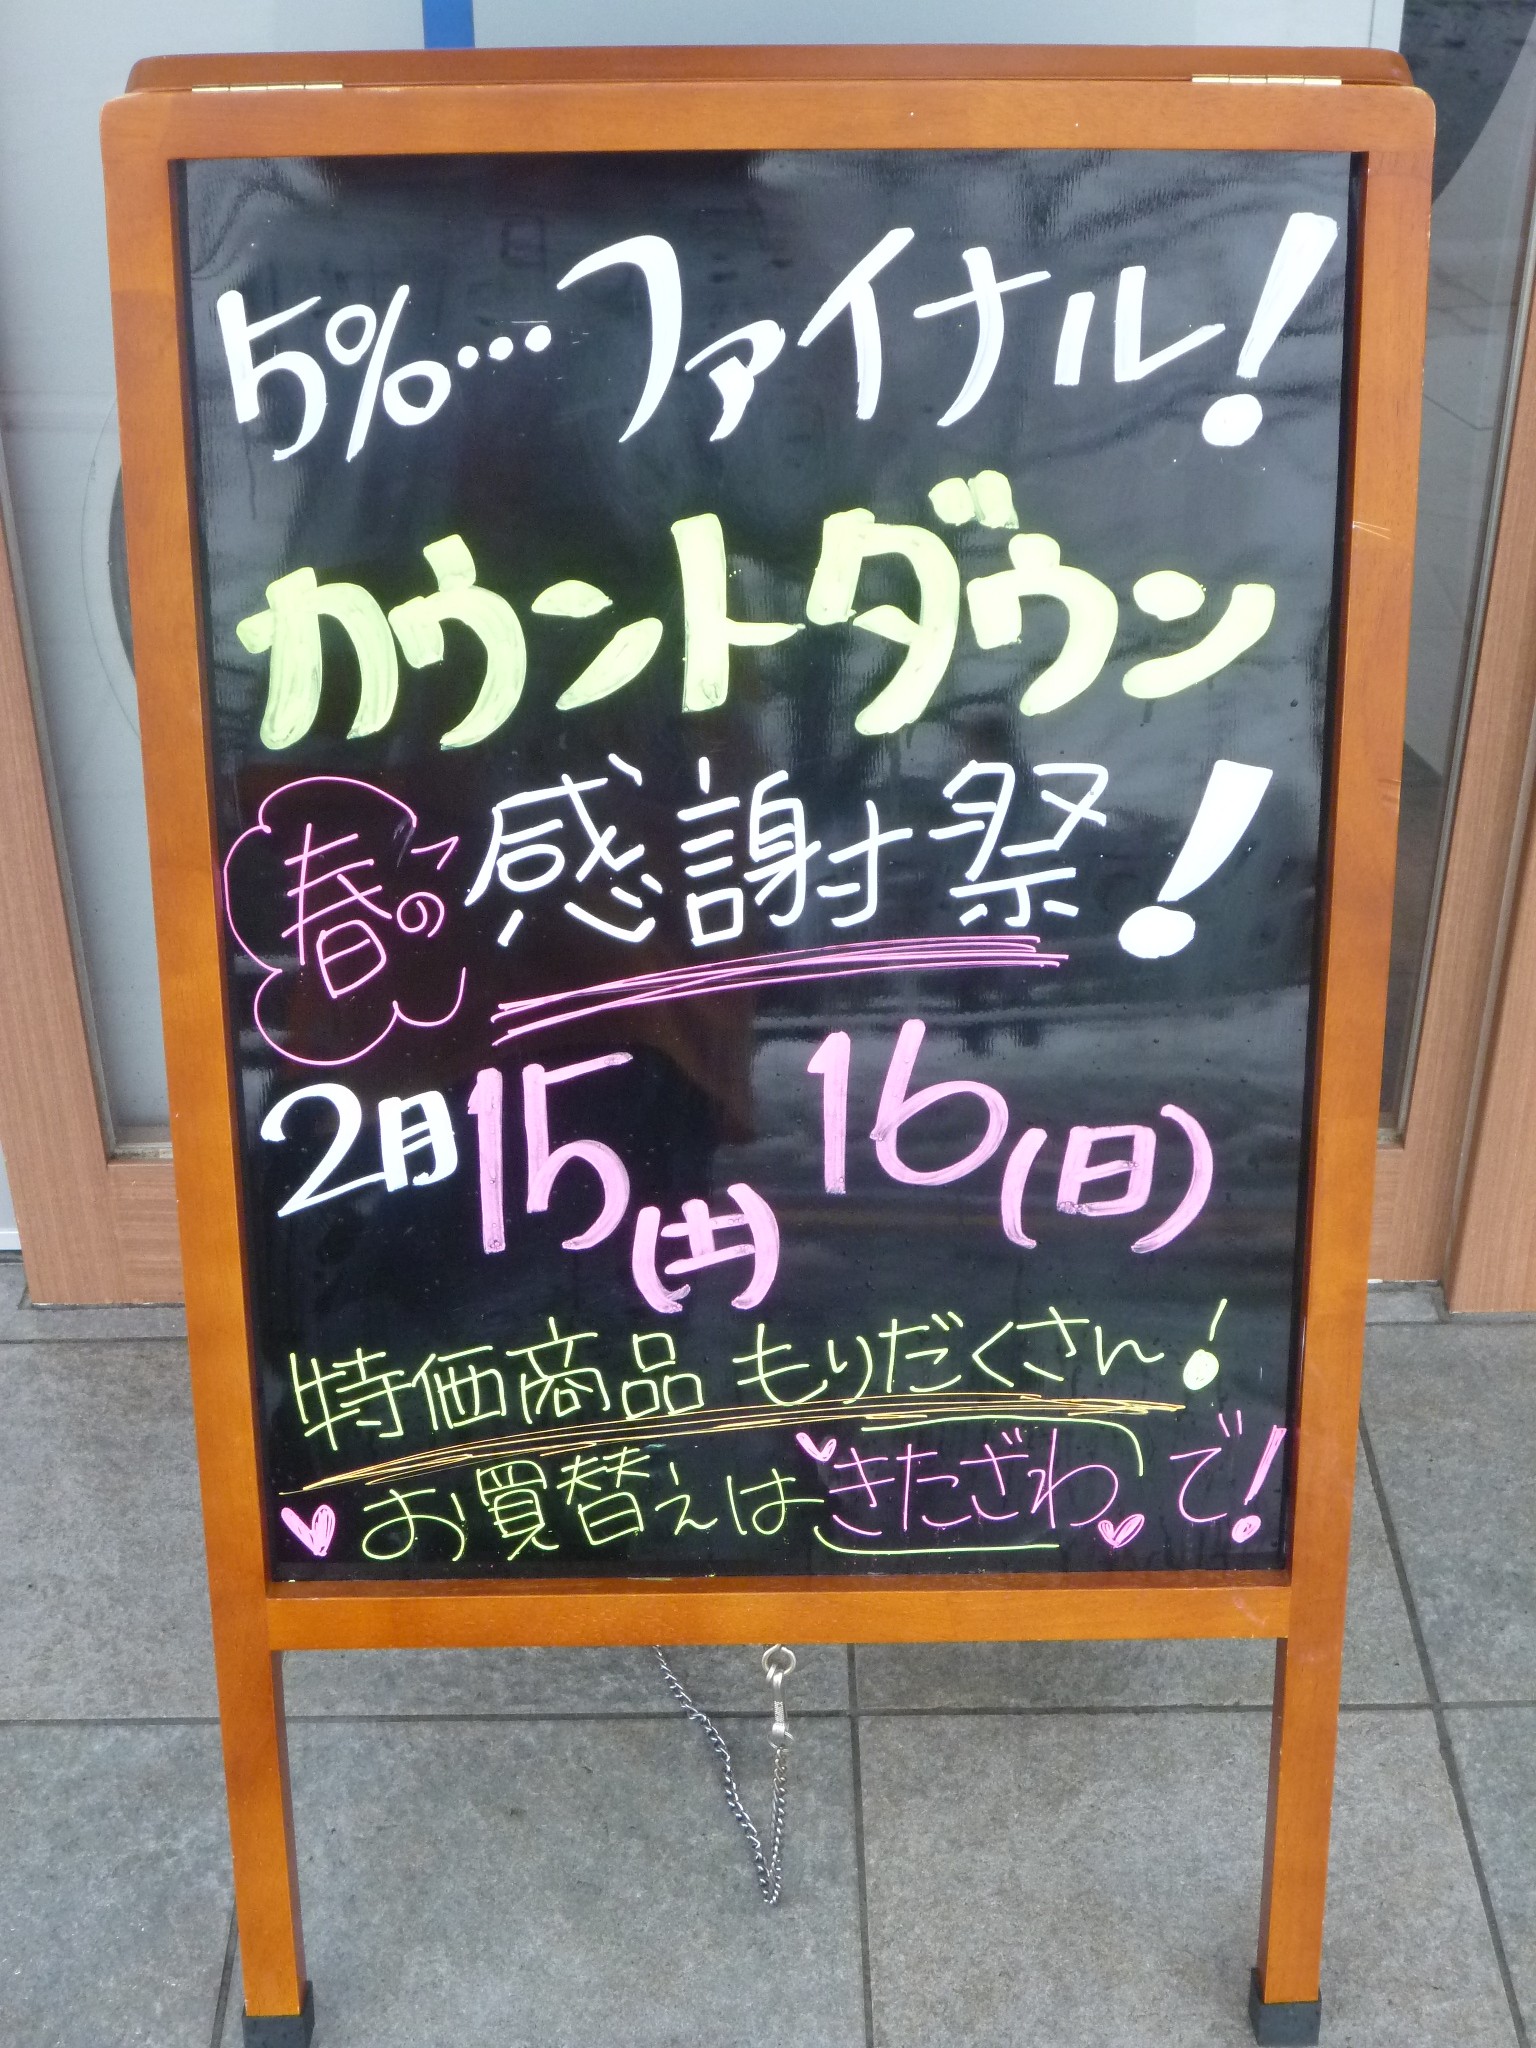 5%…ファイナル!
カウントダウン
春の感謝祭!
2月15(土) 16(日)
特価商品 もりだくさん!
お買替えはきたざわで!